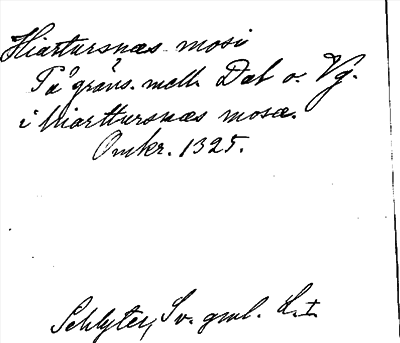 Hiartursnæs mosi
På gräns. mell. Dal o. Vg.
i hiarttursnæs mosæ.
Omkr. 1325.
Schlyter, Sv. gml. L. I